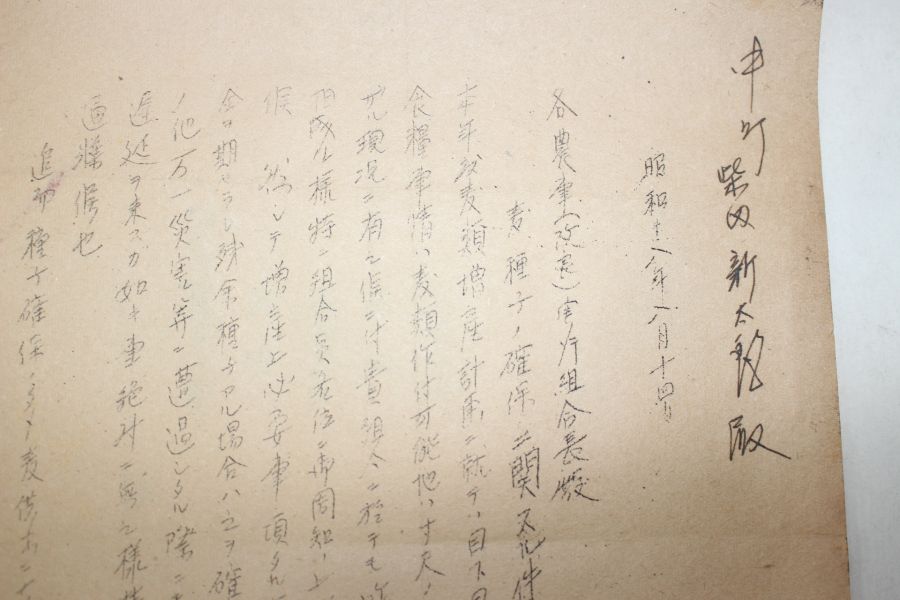 中町 柴田新太郎殿
昭和十八年八月十四日
各農事(改善)実行組合長殿
麦種子ノ確保ニ関スル件
本年度麦類増産計画ニ就テハ目下
食糧事情ハ麦類作付可能地ハ寸
ザル現況ニ有之候ニ付貴組合ニ於テモ
相成ル様特ニ組合員各位ニ御周知ノ上
候 然シテ増産上必要事項タル
全ヲ期セラレ残余種子アル場合ハ之ヲ確
ノ他万一災害等ニ遭遇シタル際ニ
遅延ヲ来スガ如キ事絶対ニ無之様
通牒候也
追而種子確保ノタメ麦供出ニ